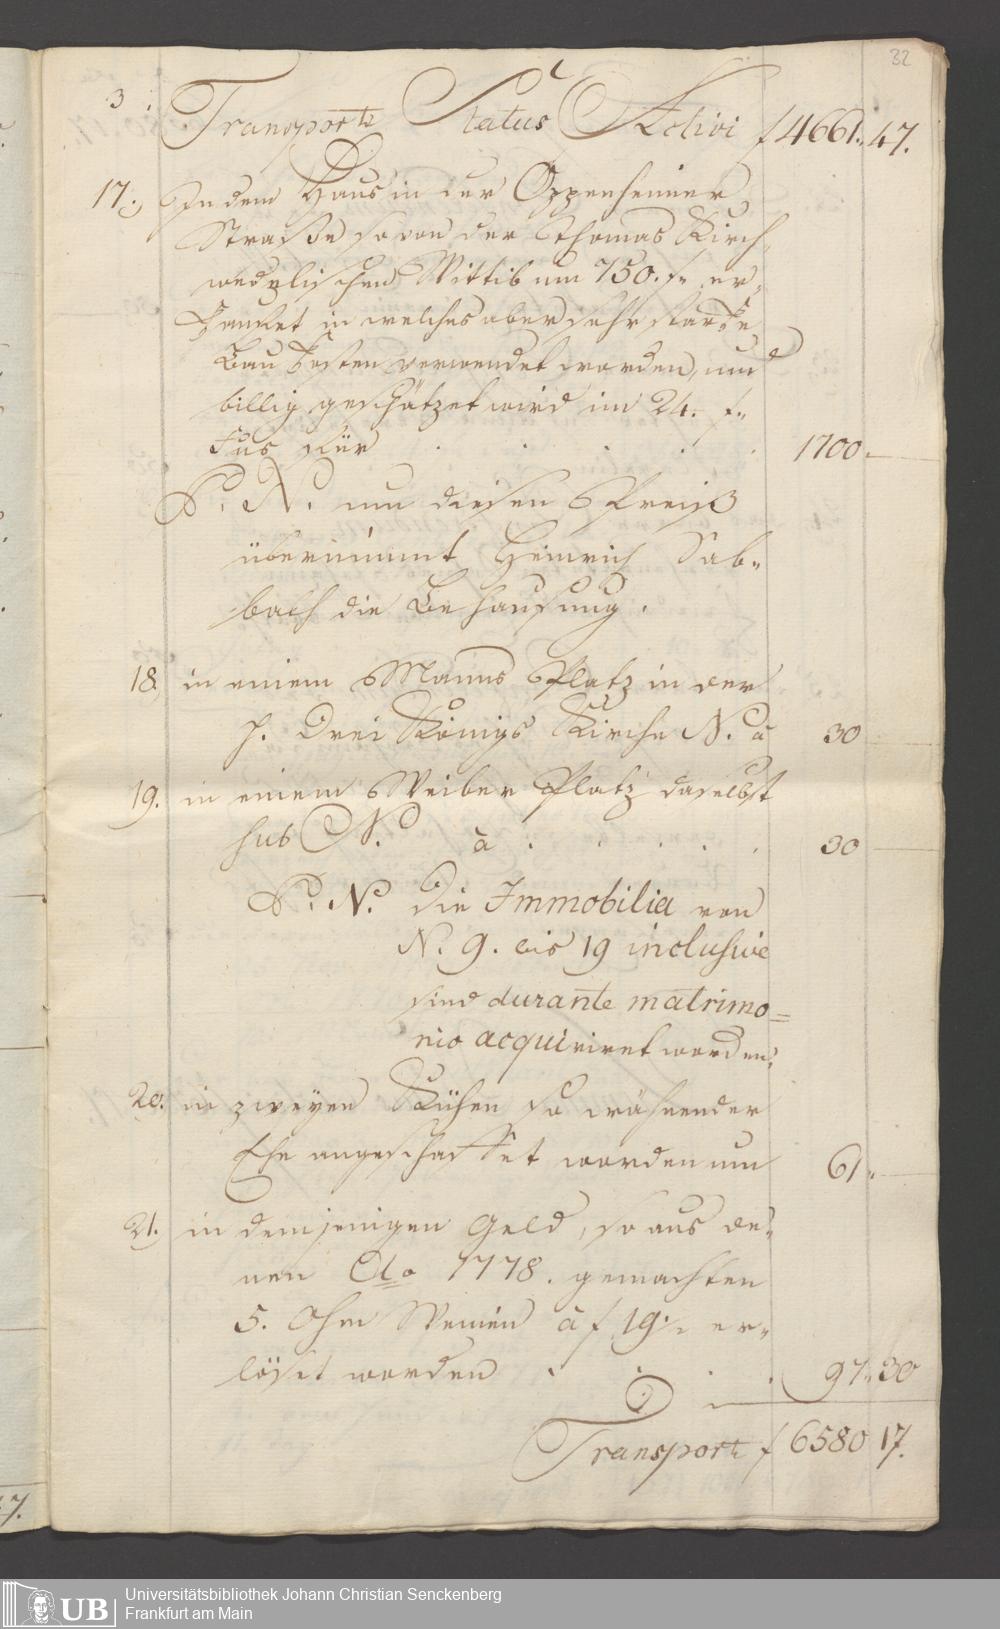 32
3. Transport Status Activi f 4661. 47.
17. In dem Haus in der Oppenheimer
Straße so von der Thomas Kirch-
wedelischen Wittib um 750. f. er-
kaufet in welches aber sehr starke
Bau Kosten verwendet worden, und
billig geschätzet wird im 24. f.
Fus für . . . . . 1700.
P. N. um diesen Preiß
übernimmt Heinrich Sab-
bach die Behausung.
18. in einem Manns Platz in der
h. Drei Königs Kirche N. à 30
19. in einem Weiber Platz daselbst
sub N. à . . . . . 30
P. N. die Immobilia von
N. 9. bis 19 inclusive
sind durante matrimo=
nio acquiriret worden.
20. in zweyen Kühen so währender
Ehe angeschaffet worden um 61.
21. in demjenigen Geld, so aus de-
nen Ao 1778. gemachten
5. Ohm Weinen à f 19½ er-
löset worden . . . . 97. 30
Transport f 6580 17.
47.
UB
Universitätsbibliothek Johann Christian Senckenberg
Frankfurt am Main